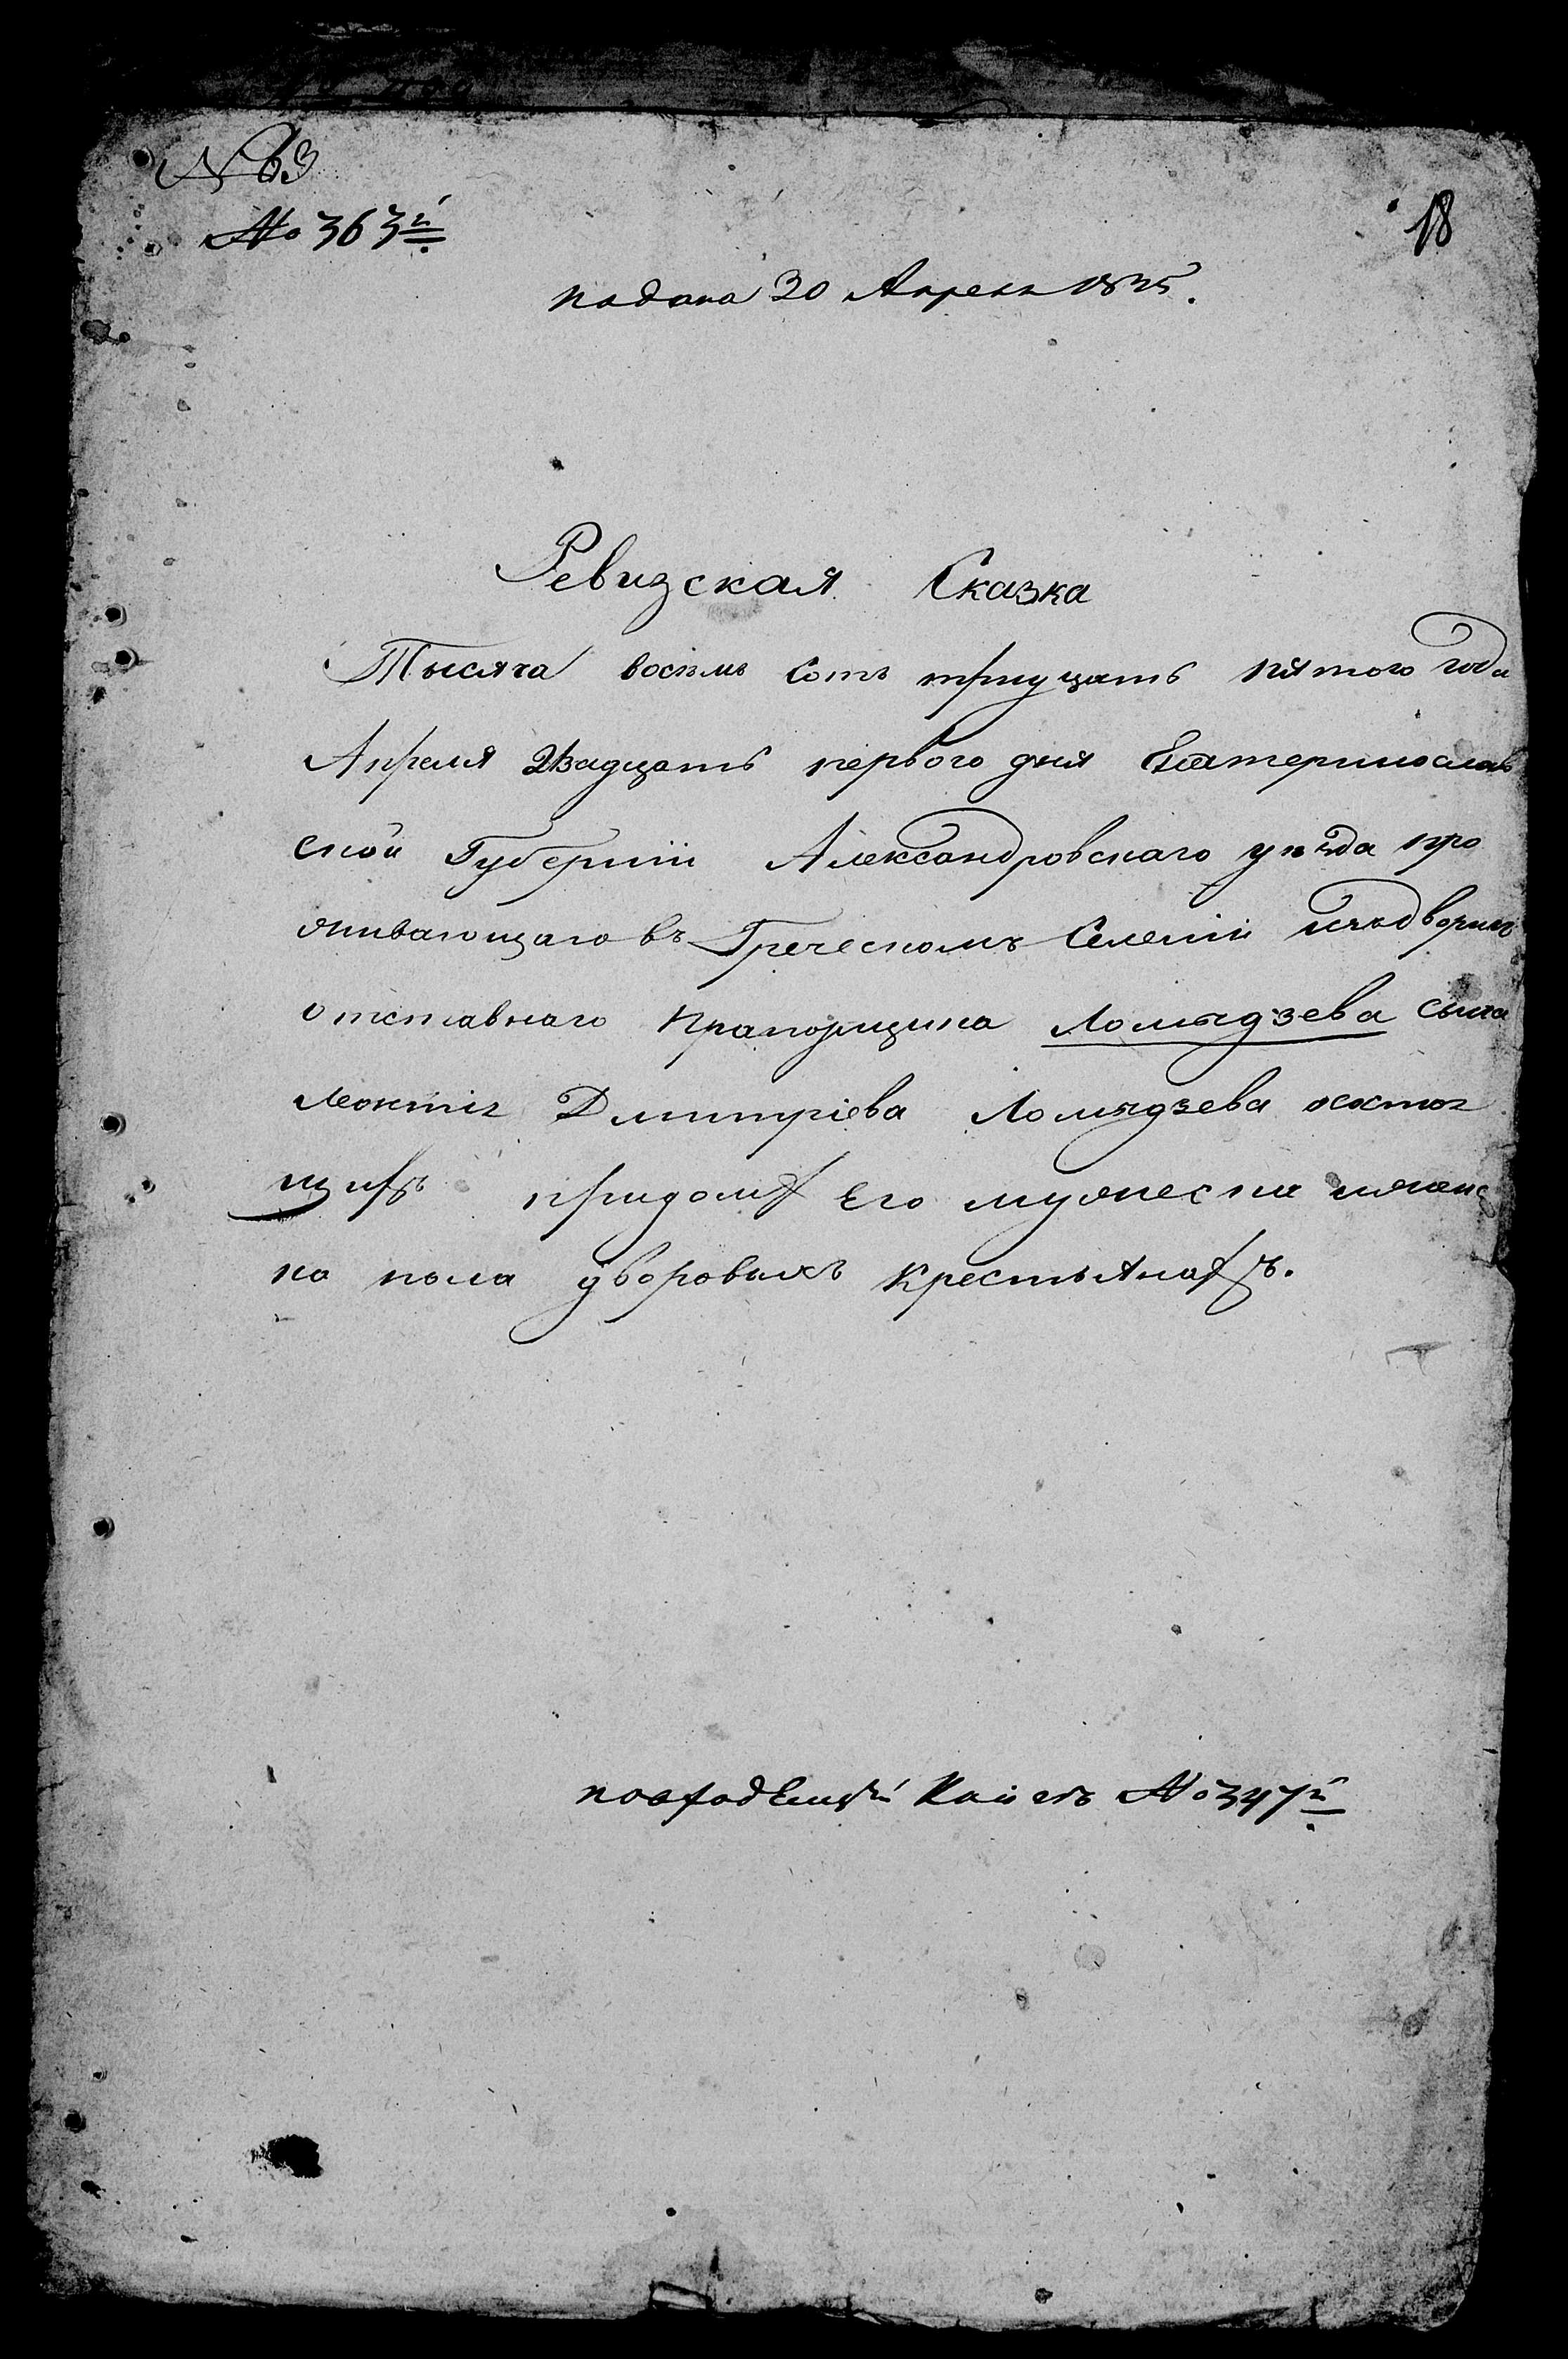 № 63
№ 363й
18
подана 30 Апреля 1835.
Ревизская Сказка
Тысяча восемь Сотъ тритцать пятого года
Апреля Двадцать первого дня Екатеринослав
ской Губернии Александровскаго уѣзда про
живающаго въ Греческомъ Селении
отставнаго Прапорщика Ломыдзева сына
Дмитріева Ломыдзева осостоя
щихъ придомѣ Его мужеска иженс
ка пола дворовыхъ Крестьянахъ.
№ 347й